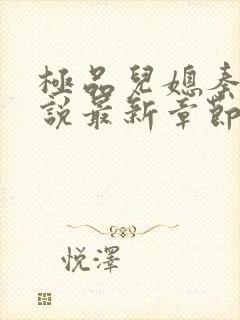 極品兒媳秦
說最新章節
悅澤